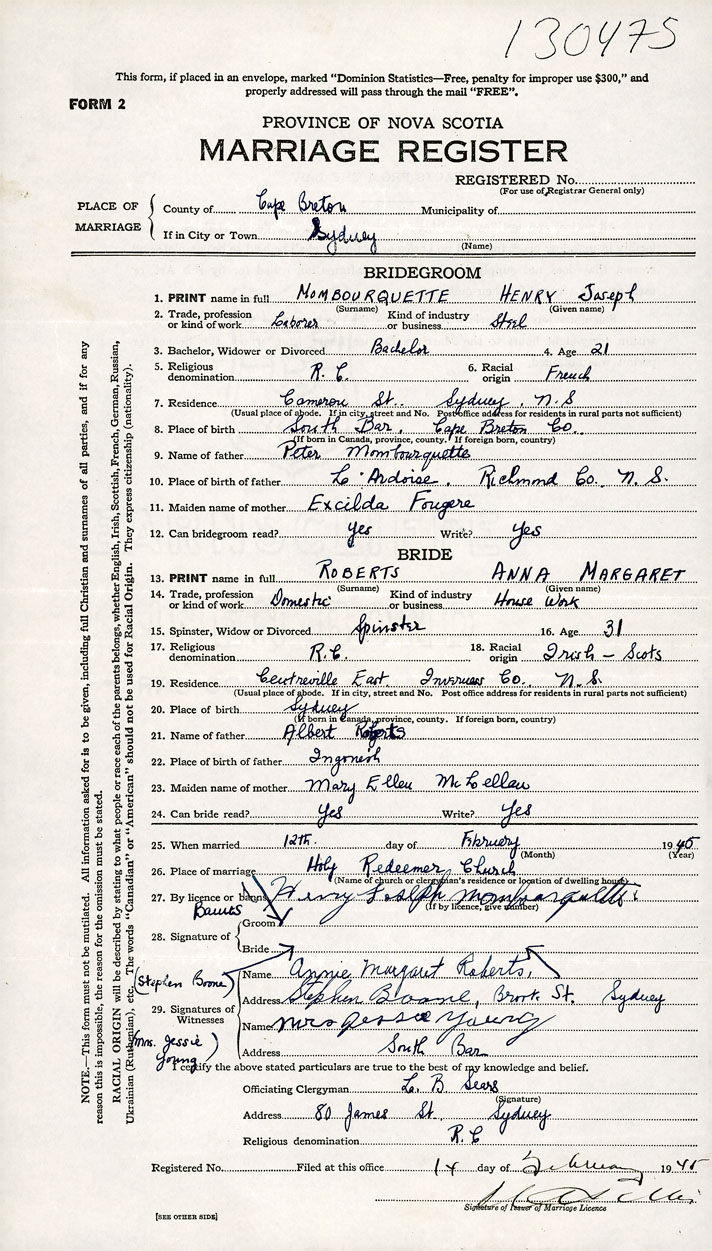 130475
This form, if placed in an envelope, marked "Dominion Statistics—Free, penalty for improper use $300," and
properly addressed will pass through the mail "FREE".
FORM 2
PROVINCE OF NOVA SCOTIA
MARRIAGE REGISTER
REGISTERED No.
(For use of Registrar General only)
PLACE OF MARRIAGE
County of Cape Breton Municipality of
If in City or Town Sydney
(Name)
BRIDEGROOM
1. PRINT name in full MOMBOURQUETTE HENRY Joseph
(Surname) (Given name)
2. Trade, profession or kind of work Laborer Kind of industry or business Steel
3. Bachelor, Widower or Divorced Bachelor 4. Age 21
5. Religious denomination R.C. 6. Racial origin French
7. Residence Cameron St. Sydney, N.S
(Usual place of abode. If in city, street and No. Post office address for residents in rural parts not sufficient)
8. Place of birth South Bar, Cape Breton Co.
(If born in Canada, province, county. If foreign born, country)
9. Name of father Peter Mombourquette
10. Place of birth of father L'Ardoise, Richmond Co. N.S.
11. Maiden name of mother Excilda Fougere
12. Can bridegroom read? yes Write? Yes
BRIDE
13. PRINT name in full ROBERTS ANNA MARGARET
(Surname) (Given name)
14. Trade, profession or kind of work Domestic Kind of industry or business House Work
15. Spinster, Widow or Divorced Spinster 16. Age 31
17. Religious denomination R.C. 18. Racial origin Irish – Scots
19. Residence Centreville East Inverness Co., N.S.
(Usual place of abode. If in city, street and No. Post office address for residents in rural parts not sufficient)
20. Place of birth Sydney
(If born in Canada, province, county. If foreign born, country)
21. Name of father Albert Roberts
22. Place of birth of father Ingonish
23. Maiden name of mother Mary Ellen McLellan
24. Can bride read? Yes Write? Yes
25. When married 12th. day of February 1945
(Month) (Year)
26. Place of marriage Holy Redeemer Church
(Name of church or clergyman's residence or location of dwelling house)
27. By licence or banns Henry Joseph Mombourquette
Banns (If by licence, give number)
Groom
28. Signature of
Bride
(Stephen Boone) Name Annie Margaret Roberts.
Address Stephen Boone, Brook St. Sydney
29. Signatures of Witnesses
Name Mrs Jessie Young
(Mrs. Jessie Young) Address South Bar
I certify the above stated particulars are true to the best of my knowledge and belief.
Officiating Clergyman L. B Sears
(Signature)
Address 80 James St. Sydney
Religious denomination R.C
Registered No. Filed at this office 14 day of February 1945
Signature of Issuer of Marriage Licence
[SEE OTHER SIDE]
NOTE.—This form must not be mutilated. All information asked for is to be given, including full Christian and surnames of all parties, and if for any
reason this is impossible, the reason for the omission must be stated.
RACIAL ORIGIN will be described by stating to what people or race each of the parents belongs, whether English, Irish, Scottish, French, German, Russian,
Ukrainian (Ruthenian), etc. The words "Canadian" or "American" should not be used for Racial Origin. They express citizenship (nationality).